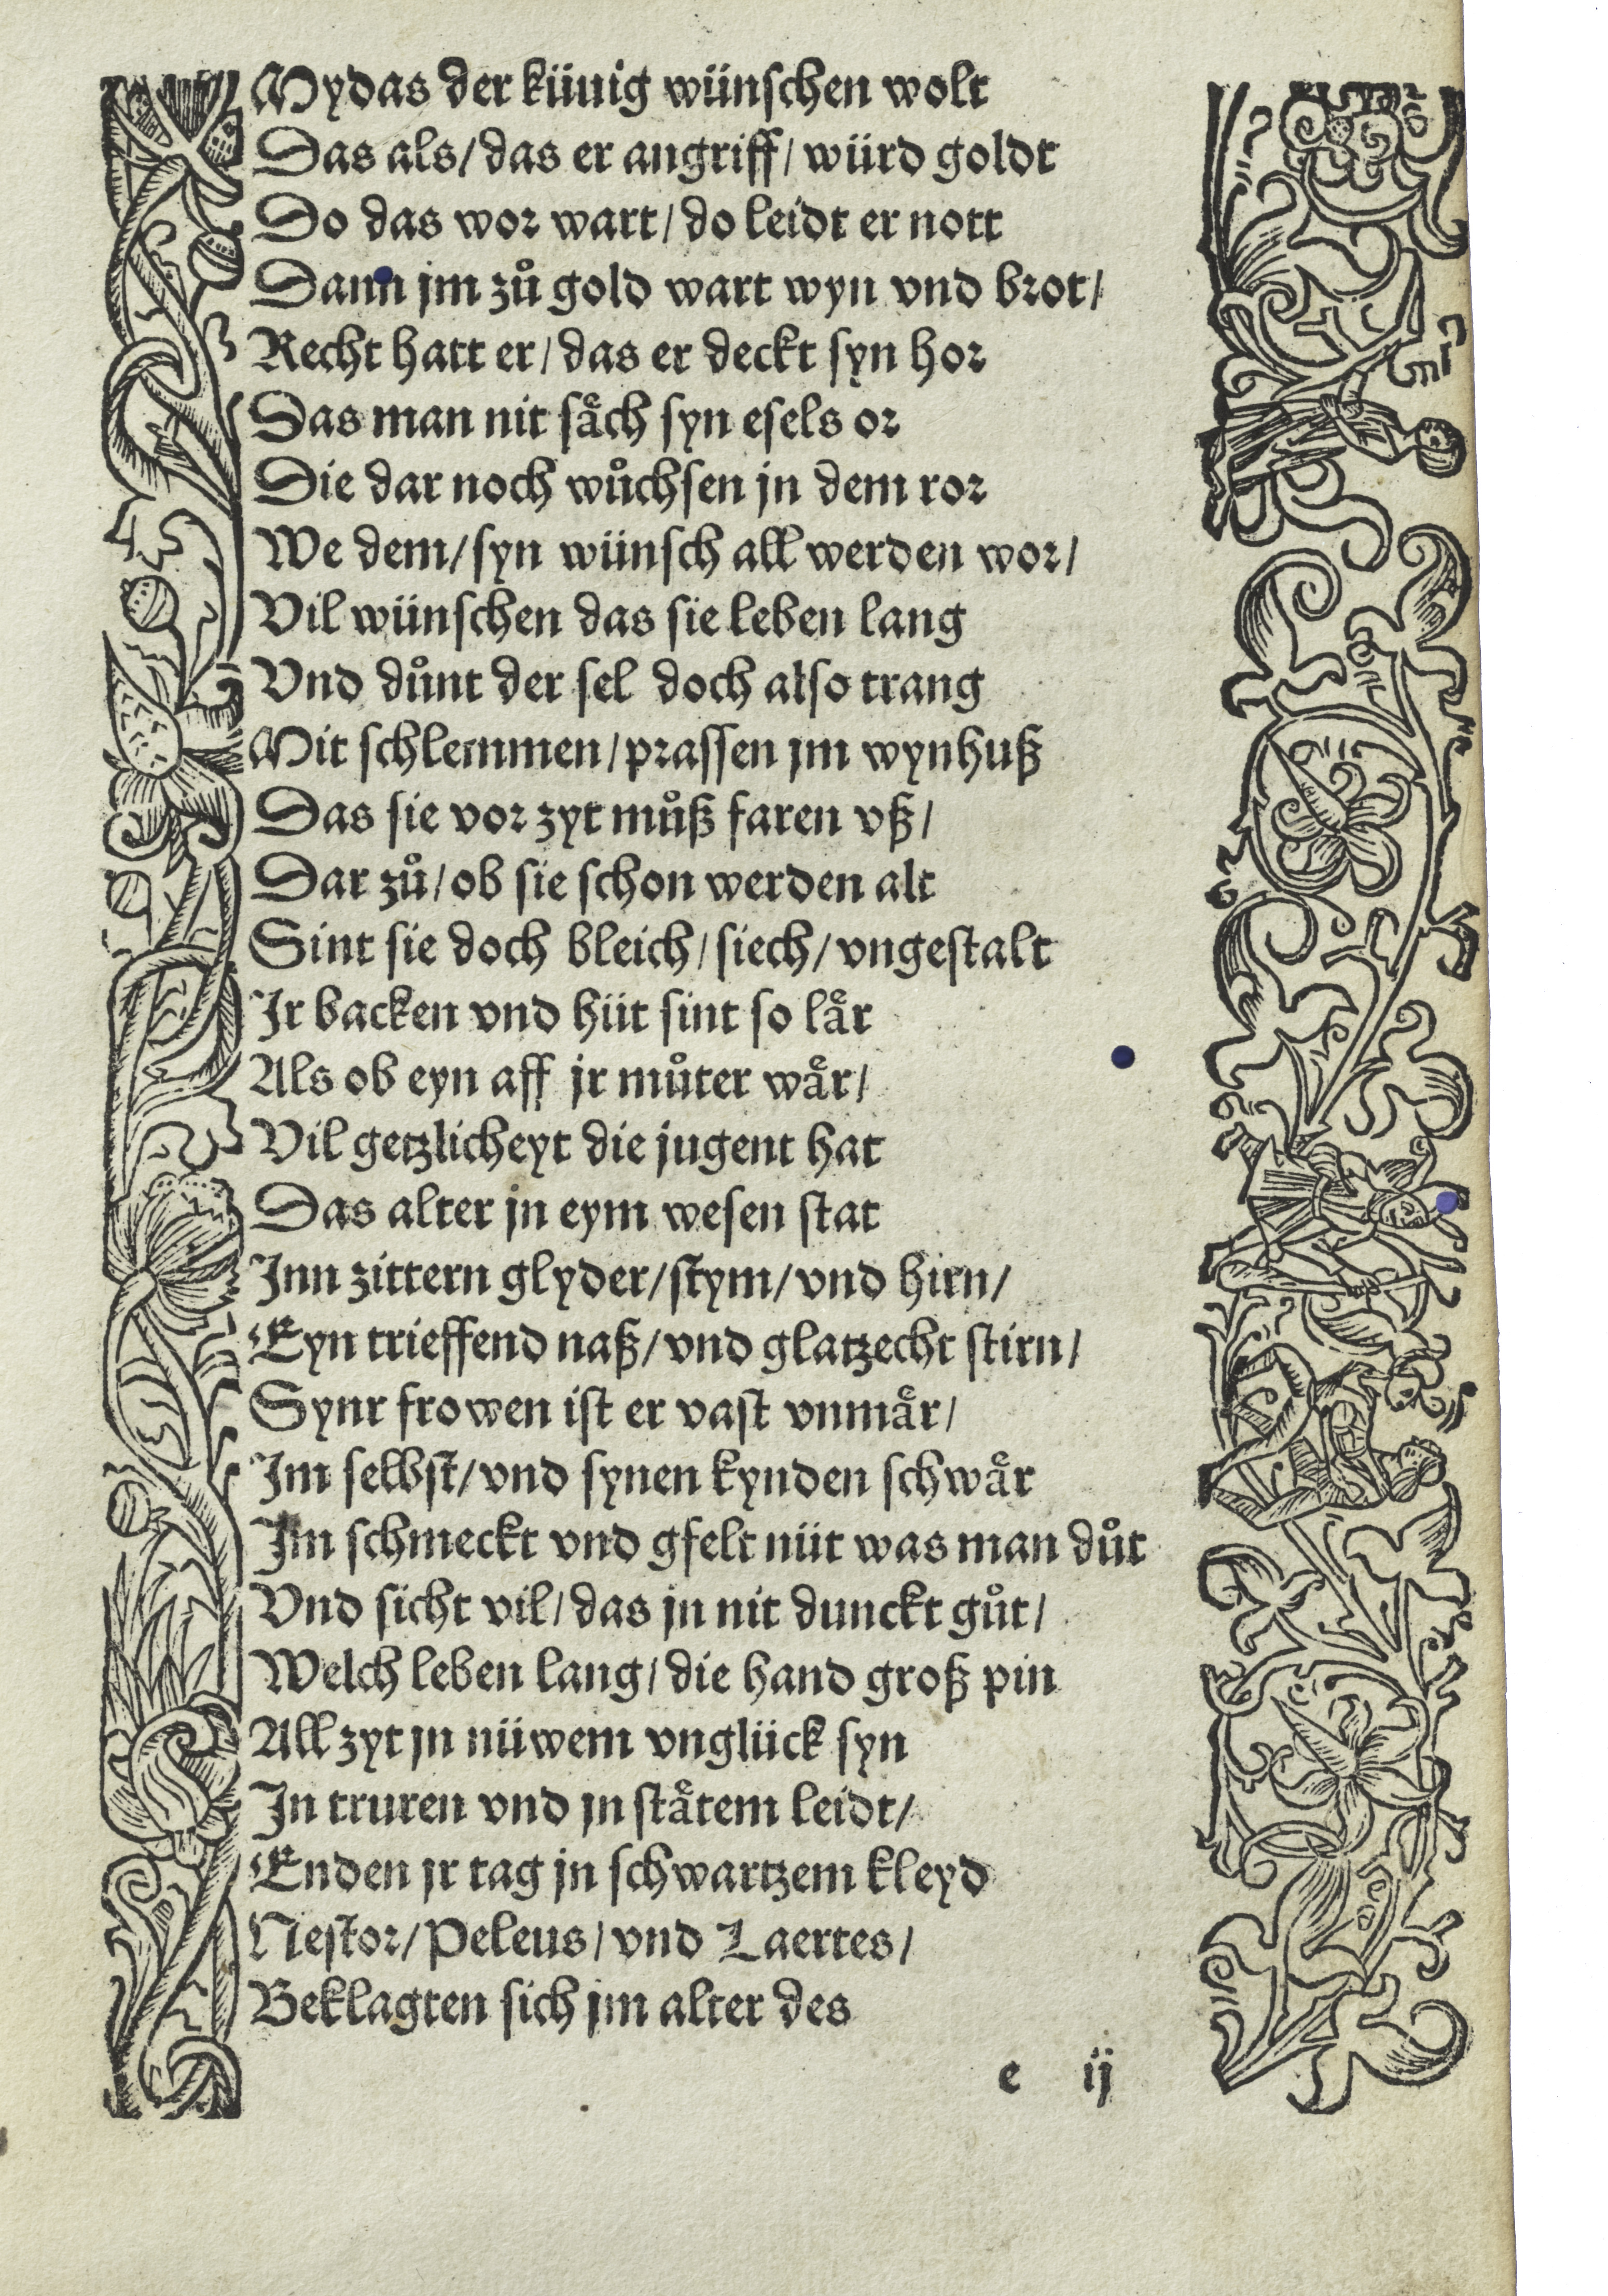 Mydas der künig wünschen wolt
Das als/ das er angriff/ würd goldt
Do das wor wart/ do leidt er nott
Dann jm zů gold wart wyn vnd brot/
Recht hatt er/ das er deckt syn hor
Das man nit såch syn esels or
Die dar noch wůchsen jn dem ror
We dem/ syn wünsch all werden wor/
Vil wünschen das sie leben lang
Vnd důnt der sel doch also trang
Mit schlemmen/ prassen jm wynhuß
Das sie vor zyt můß faren vß/
Dar zů/ ob sie schon werden alt
Sint sie doch bleich/ siech/ vngestalt
Ir backen vnd hüt sint so lår
Als ob eyn aff jr můter wår/
Vil getzlicheyt die jugent hat
Das alter jn eym wesen stat
Inn zittern glyder/ stym/ vnd hirn/
Eyn trieffend naß/ vnd glatzecht stirn/
Synr frowen ist er vast vnmår/
Im selbst/ vnd synen kynden schwår
Im schmeckt vnd gfelt nüt was man důt
Vnd sicht vil/ das jn nit dunckt gůt/
Welch leben lang/ die hand groß pin
All zyt jn nüwem vnglück syn
In truren vnd jn ståtem leidt/
Enden jr tag jn schwartzem kleyd
Nestor/ Peleus/ vnd Laertes/
Beklagten sich jm alter des
e ij